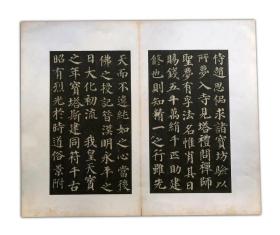 侍趙思侃求諸寶坊驗以
所夢入寺見塔禮問禪師
聖夢有孚法名惟肖其日
賜錢五十萬絹千匹助建
修也則知精一之行雖先
天而不違純如之心當後
佛之授記昔漢明永平之
日大化初流 我皇天寶
之年寶塔斯建同符千古
昭有烈光於時道俗景附